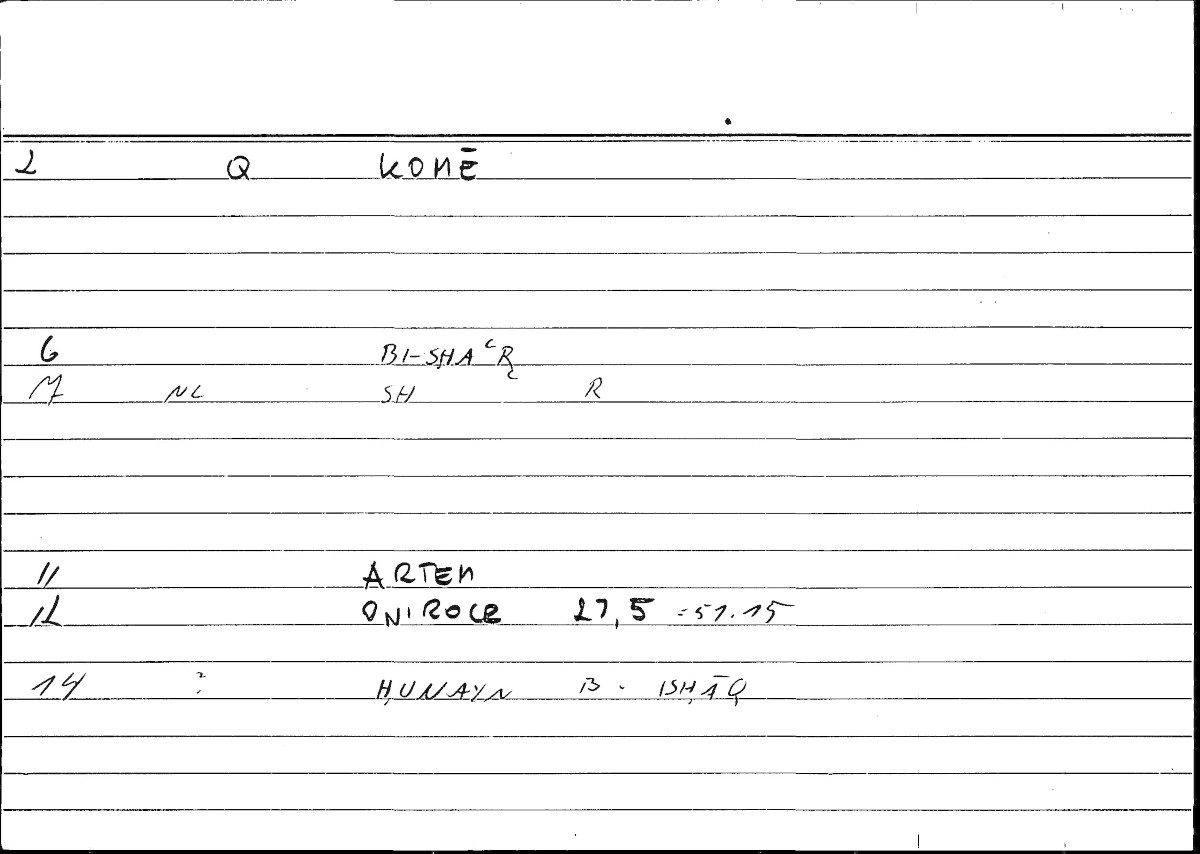 2 Q KOMĒ
6 BI-SHAʿR
M NC SH R
11 ARTEM
12 ONIROCR 27,5 =51.15
14 ? ḤUNAYN B. ISḤĀQ